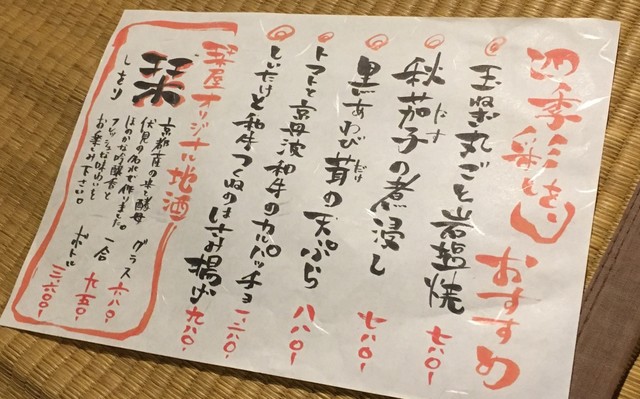 四季彩と、 おすすめ
玉ねぎ丸ごと岩塩焼 七八〇ー
秋茄子の煮浸し 七八〇ー
なす
黒あわび茸の天ぷら 八八〇ー
だけ
トマトと京丹波和牛のカルパッチョ 一、二八〇ー
しいたけと和牛つくねのはさみ揚げ 九八〇ー
栞屋オリジナル地酒
栞
しをり
京都産の米と酵母
伏見の名水で作りました。
ほのかな吟醸香と
フレッシュな味わいを
お楽しみ下さい。
グラス 六八〇ー
一合 九五〇ー
ボトル 三、六〇〇ー